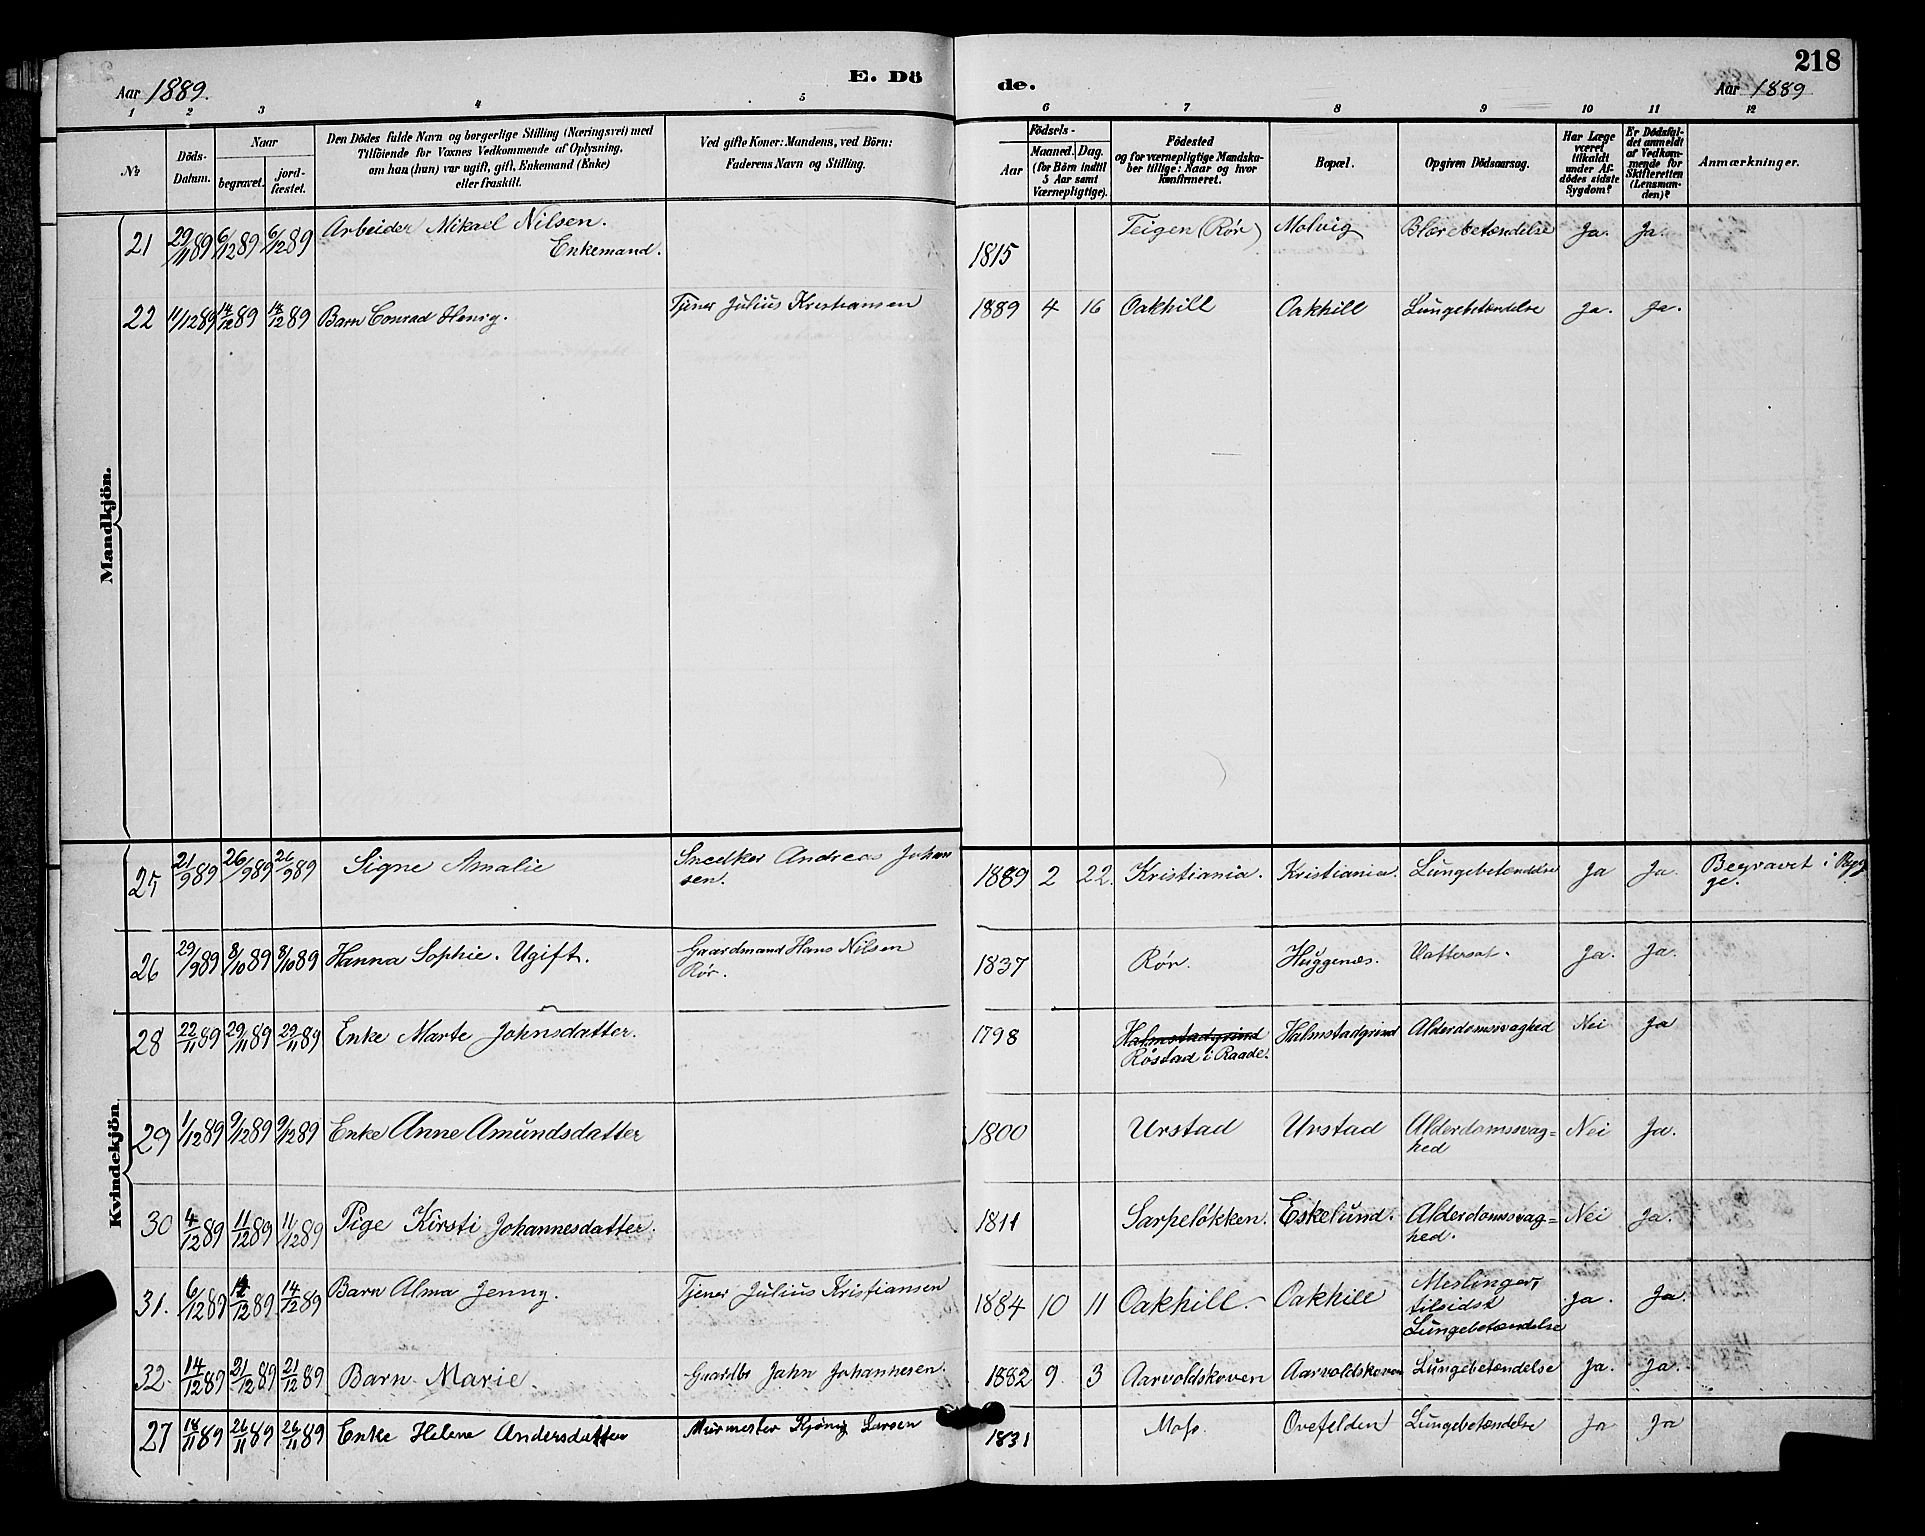 Aar 1889.
E. Dö
de.
218
Aar 1889
1 2 3 4 5 6 7 8 9 10 11 12
№
Döds-
Datum.
Naar
begravet.
jord-
fæstet.
Den Dödes fulde Navn og borgerlige Stilling (Næringsvei) med
Tilföiende for Voxnes Vedkommende af Oplysning,
om han (hun) var ugift, gift, Enkemand (Enke)
eller fraskilt.
Ved gifte Koner: Mandens, ved Börn:
Faderens Navn og Stilling.
Födsels-
Aar
Maaned. Dag.
(for Börn indtil
5 Aar samt
Værnepligtige).
Födested
og for værnepligtige Mandska-
ber tillige: Naar og hvor
konfirmeret.
Bopæl.
Opgiven Dödsaarsag.
Har Læge
været
tilkaldt
under Af-
dödes sidste
Sygdom?
Er Dödsfal-
det anmeldt
af Vedkom-
mende for
Skifteretten
(Lensman-
den)?
Anmærkninger.
Mandkjön.
21 29/11 89 6/12 89 6/12 89 Arbeider Mikael Nilsen.
Enkemand.
1815 Teigen (Rör) Molvig Blærebetændelse Ja. Ja.
22 11/12 89 14/12 89 14/12 89 Barn Conrad Henry. Tjener Julius Kristiansen 1889 4 16 Oakhill Oakhill Lungebetændelse Ja. Ja.
Kvindekjön
25 21/9 89 26/9 89 26/9 89 Signe Amalie Snedker Andreas Johan
sen.
1889 2 22. Kristiania. Kristiania. Lungebetændelse Ja Ja. Begravet i Ryg
ge.
26 29/9 89 8/10 89 8/10 89 Hanna Sophie. Ugift. Gaardmand Hans Nilsen
Rör.
1837 Rör. Huggenæs. Vattersot. Ja. Ja.
28 22/11 89 29/11 89 29/11 89 Enke Marte Johnsdatter. 1798 Halmstadgrind
Röstad i Raade.
Halmstadgrind Alderdomssvaghed Nei Ja
29 1/12 89 9/12 89 9/12 89 Enke Anne Amundsdatter 1800 Urstad Urstad Alderdomssvag=
hed
Nei Ja.
30 4/12 89 11/12 89 11/12 89 Pige Kirsti Johannesdatter. 1811 Sarpelökken. Eskelund. Alderdomssvag=
hed.
Nei Ja.
31. 6/12 89 14/12 89 14/12 89 Barn Alma Jenny. Tjener Julius Kristiansen 1884 10 11 Oakhill. Oakhill Meslinger,
tilsidst
Lungebetændelse
Ja. Ja.
32. 14/12 89 21/12 89 21/12 89 Barn Marie. Gaardbr John Johannesen. 1882 9 3 Aarvoldskoven Aarvoldskoven Lungebetændelse Ja. Ja.
27 18/11 89 26/11 89 26/11 89 Enke Helene Andersdatter Murmester Larsen 1831 Moss. Ovefelden Lungebetændelse Ja Ja